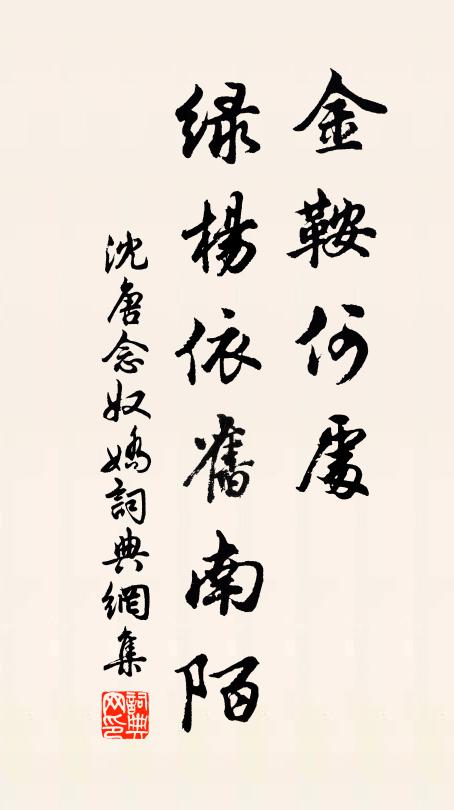 金鞍何處
綠楊依舊南陌
沈唐念奴嬌詞典網集
詞典网印